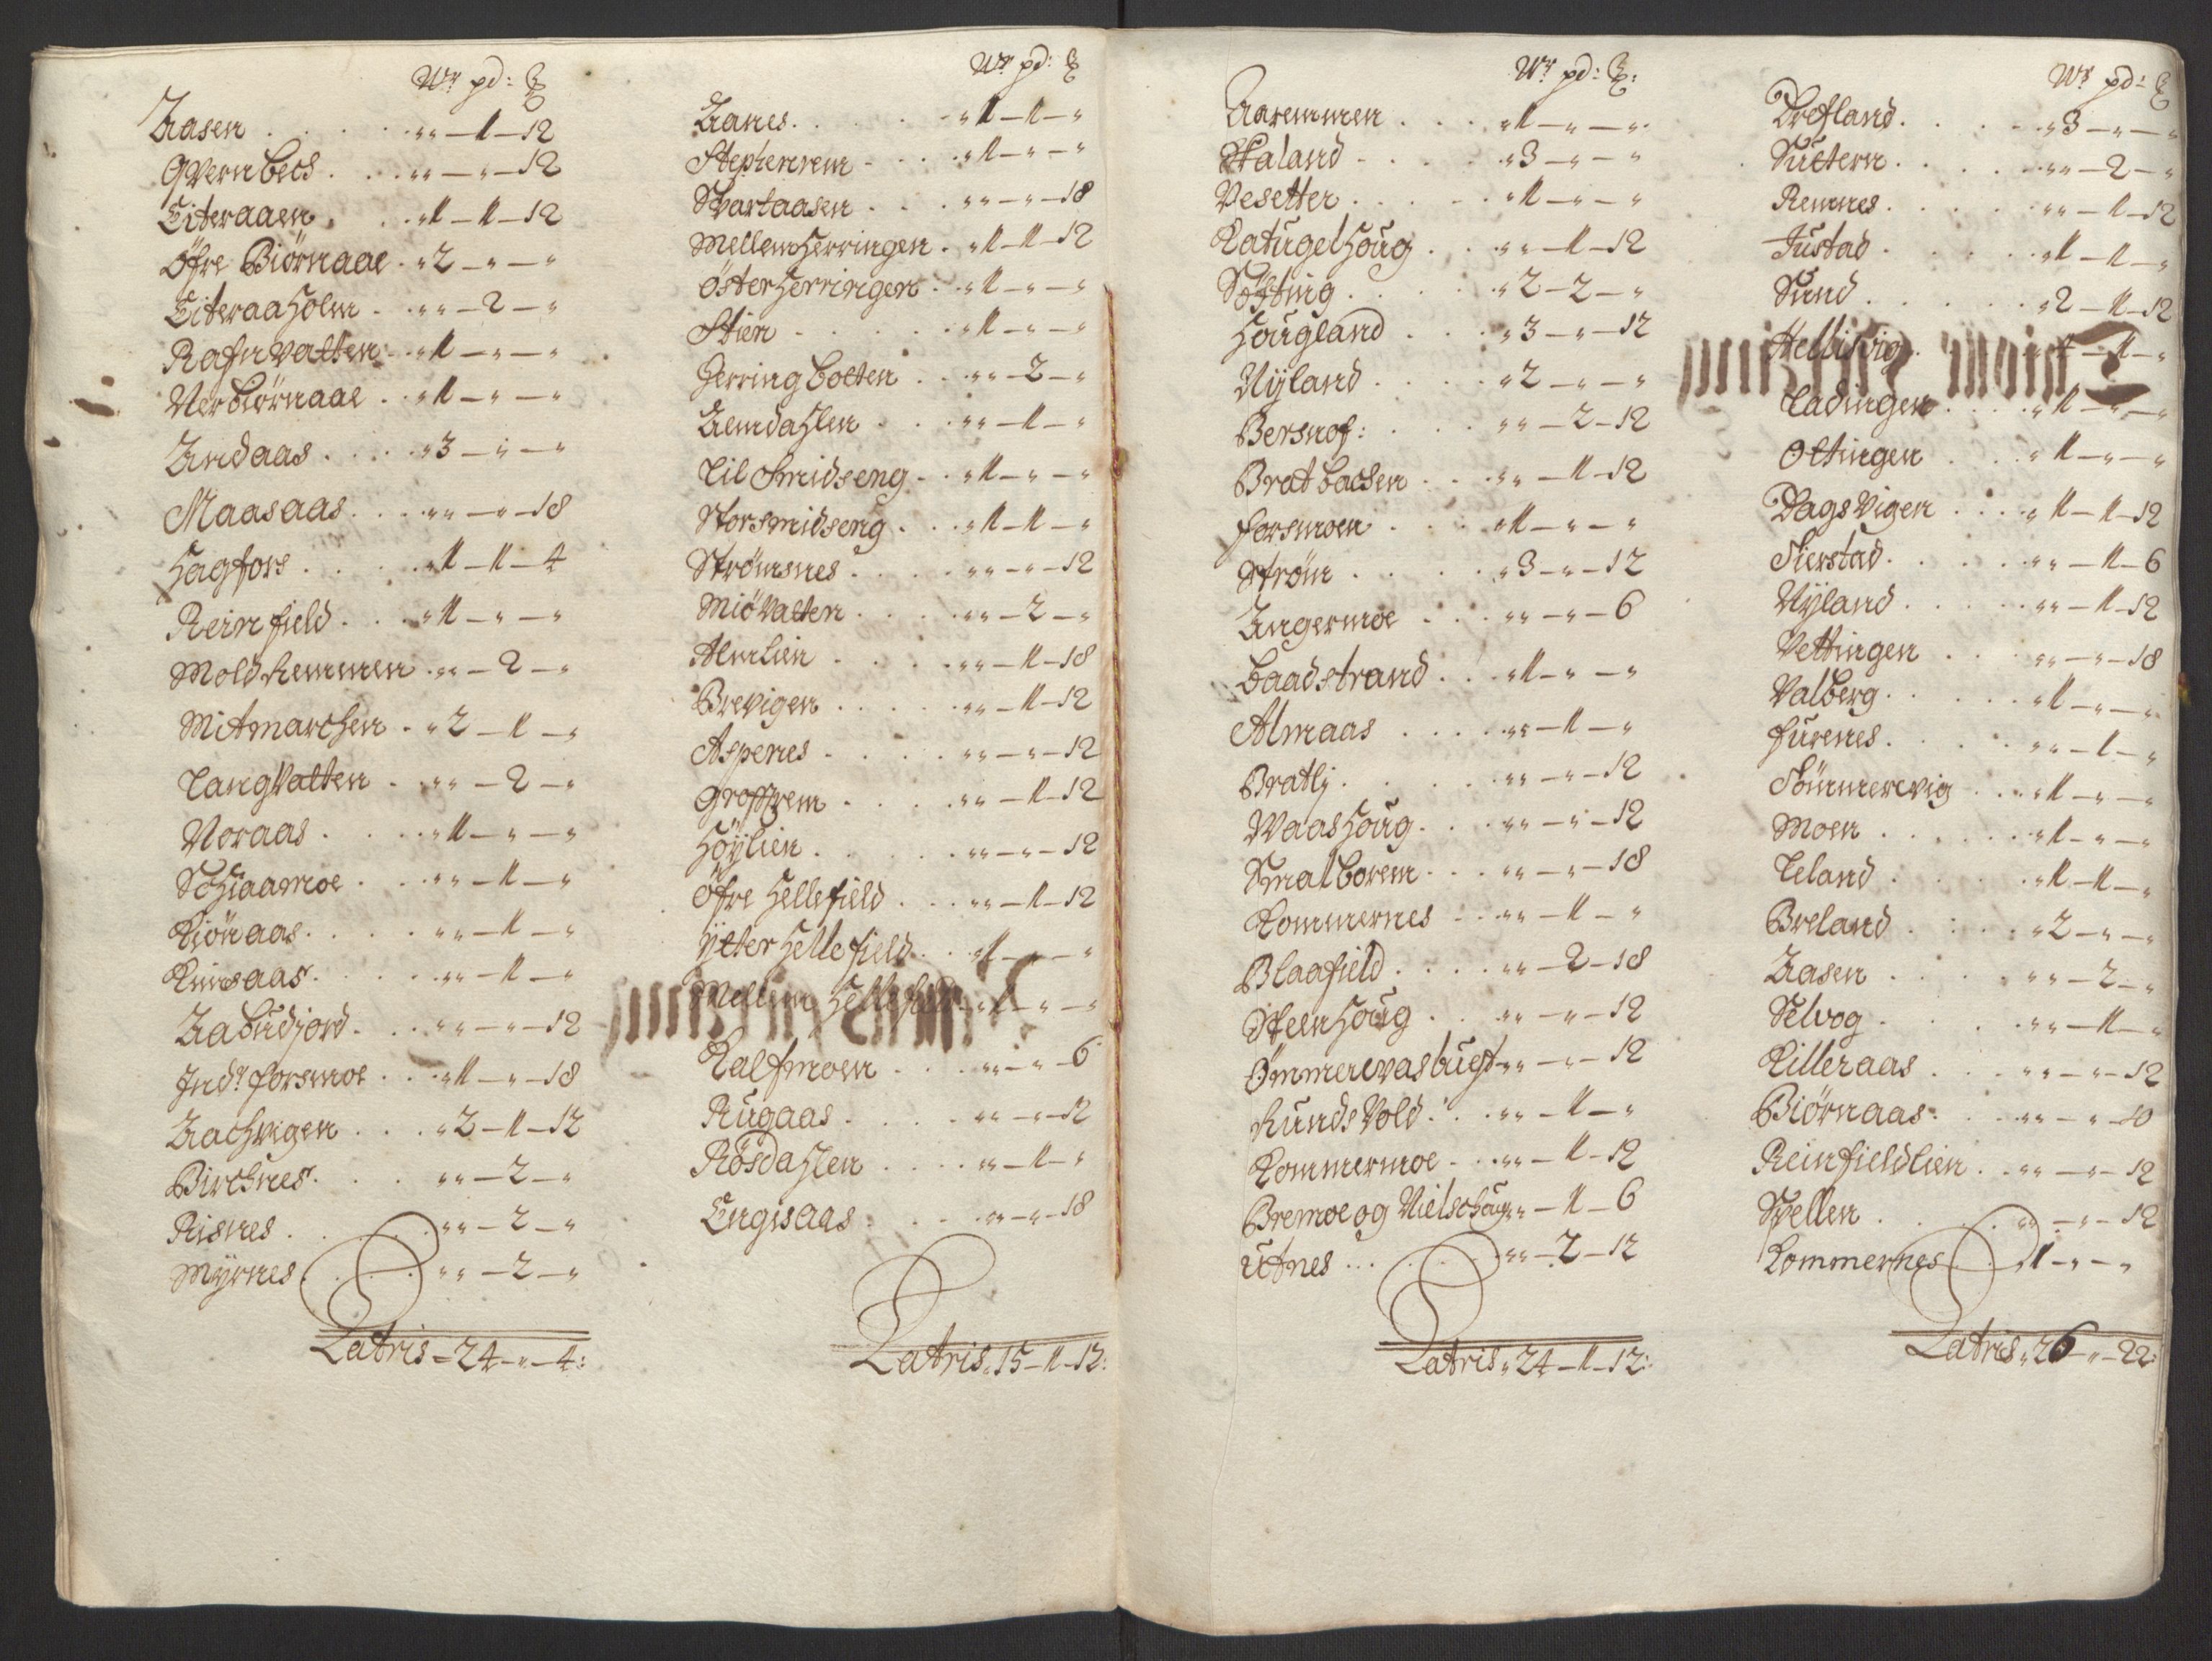 Wr pd: ℔
Aasen . . . . . „ „ — 1 — 12
Qvernbech . . „ „ — „ — 12
Eiteraaen . . „ 1 — 1 — 12
Öfre Biörnaae . „ 2 — „ — „
Eiteraaholm . . „ „ — 2 — „
Rafnvatten . . „ 1 — „ — „
Nerbiörnaae . . „ 1 — „ — „
Andaas . . . . „ 3 — „ — „
Maasaas . . . . „ „ — „ — 18
Hagfors . . . . „ 1 — 1 — 4
Reinfield . . . „ 1 — „ — „
Moldremmen . „ „ — 2 — „
Mitmarchen . „ 2 — 1 — „
Langvatten . . „ „ — 2 — „
Noraas . . . . „ 1 — „ — „
Schiaamoe . . „ „ — 1 — „
Kiönaas . . . . „ „ — 1 — „
Kinsaas . . . . „ „ — 1 — „
Aabudjord . . „ „ — „ — 12
Indr forsmoe . . „ 1 — „ — 18
Aachvigen . . . „ 2 — 1 — 12
Birchnes . . . „ „ — 2 — „
Risnes . . . . . „ „ — 2 — „
Myrnes . . . . „ „ — 2 — „
Latris = 24 — „ — 4:
Wr pd: ℔
Aanes . . . . . „ 1 — 1 — „
Stephenrem . . . „ 1 — „ — „
Svartaasen . . . „ „ — „ — 18
Mellemherringen . „ 1 — 1 — 12
Österherringen . . „ 1 — „ — „
Stien . . . . . „ 1 — „ — „
Herringbotten . . „ „ — 2 — „
Aemdahlen . . . „ „ — 1 — „
Lilsmidseng . . „ 1 — „ — „
Storsmidseng . . „ 1 — 1 — „
Strömsnes . . . . „ „ — „ — 12
Miövatten . . . . „ „ — 2 — „
Almlien . . . . „ „ — 1 — 18
Brevigen . . . . . „ „ — 1 — 12
Aspenes . . . . . „ „ — „ — 12
Groffrem . . . . „ „ — 1 — 12
Höylien . . . . . „ „ — „ — 12
Öfre Hellefield . . . „ „ — 1 — 12
Ytter Hellefield . . „ 1 — „ — „
Mellem Hellefield . „ 1 — „ — „
Kalfmoen . . . „ „ — „ — 6
Rugaas . . . . . „ „ — „ — 12
Rösdahlen . . . . „ „ — 1 — „
Engisaas . . . . „ „ — „ — 18
Latris „ 15 — 1 — 12:
Wr pd: ℔:
Aaremmen . . . „ 1 — „ — „
Staland . . . . „ 3 — „ — „
Vesetter . . . . . „ 1 — „ — „
Katugelhoug . . „ „ — 1 — 12
Söfting . . . . . „ 2 — 2 — „
Hougland . . . . „ 3 — „ — 12
Nyland . . . . . „ 2 — „ — „
Bersnof: . . . „ „ — 2 — 12
Bratbachen . . . „ „ — 1 — 12
Forsmoen . . . „ 1 — „ — „
Ström . . . . . „ 3 — „ — 12
Angermoe . . . „ „ — „ — 6
Baadstrand . . . „ 1 — „ — „
Almaas . . . . „ „ — 1 — „
Bratli . . . . . „ „ — „ — 12
Waashoug . . . „ „ — „ — 12
Smalborem . . . „ „ — „ — 18
Kommernes . . „ „ — 1 — „
Blaafield . . . . „ „ — 2 — 18
Steenhoug . . „ „ — „ — 12
Ömmervasbugt „ „ — „ — 12
Rundsvold . . . „ „ — 1 — „
Kommermoe . . „ „ — 1 — 12
Bremoe og Nielshaug „ „ — 1 — 6
Utnes . . . . . „ „ — 2 — 12
Latris „ 24 — 1 — 12:
Wr pd: ℔
Drefland . . . . . „ 3 — „ — „
Suttern . . . . . „ „ — 2 — „
Remnes . . . . . „ „ — 1 — 12
Justad . . . . . „ 1 — 1 — „
Sund . . . . . „ 2 — 1 — 12
Hellisvig . . . „ 1 — 1 — „
Ladingen . . . . „ 1 — „ — „
Ottingen . . . „ 1 — „ — „
Dagsvigen . . . . „ 1 — 1 — 12
Sierstad . . . . . „ „ — 1 — 6
Nyland . . . . . „ „ — 1 — 12
Vettingen . . . „ „ — „ — 18
Valberg . . . . . „ 1 — „ — „
Furenes . . . . . „ „ — 1 — „
Sömmerevig . . . „ 1 — „ — „
Moen . . . . . . „ 1 — „ — „
Leland . . . . . „ 1 — 1 — „
Breland . . . . „ 2 — „ — „
Aasen . . . . . „ „ — 2 — „
Selvog . . . . . „ „ — 1 — „
Killeraas . . . . „ „ — „ — 12
Biörnaas . . . . „ „ — „ — 10
Reinfieldlien . . „ „ — „ — 12
Spellen . . . . . „ „ — „ — 12
Kommernes . . „ 1 — „ — „
Latris „ 26 — „ — 22: